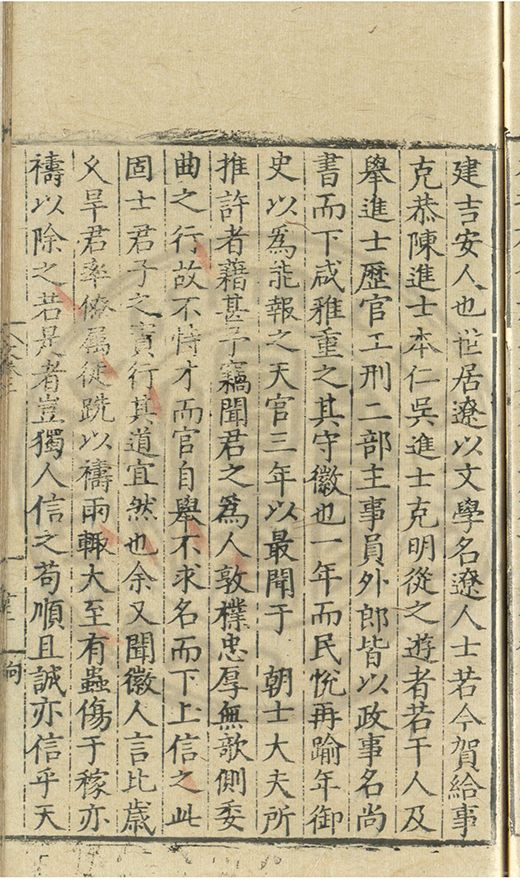 建吉安人也世居遼以文學名遼人士若今賀給事
克恭陳進士本仁吳進士克明從之遊者若干人及
舉進士歷官工刑二部主事員外郎皆以政事名尚
書而下咸雅重之其守徽也一年而民悅再踰年御
史以爲能報之天官三年以最聞于　朝士大夫所
推許者藉甚予竊聞君之爲人敦樸忠厚無欹側委
曲之行故不恃才而官自舉不求名而下上信之此
固士君子之實行其道宜然也余又聞徽人言比歲
乆旱君率僚屬徒跣以禱雨輙大至有蟲傷于稼亦
禱以除之若是者豈獨人信之苟順且誠亦信乎天